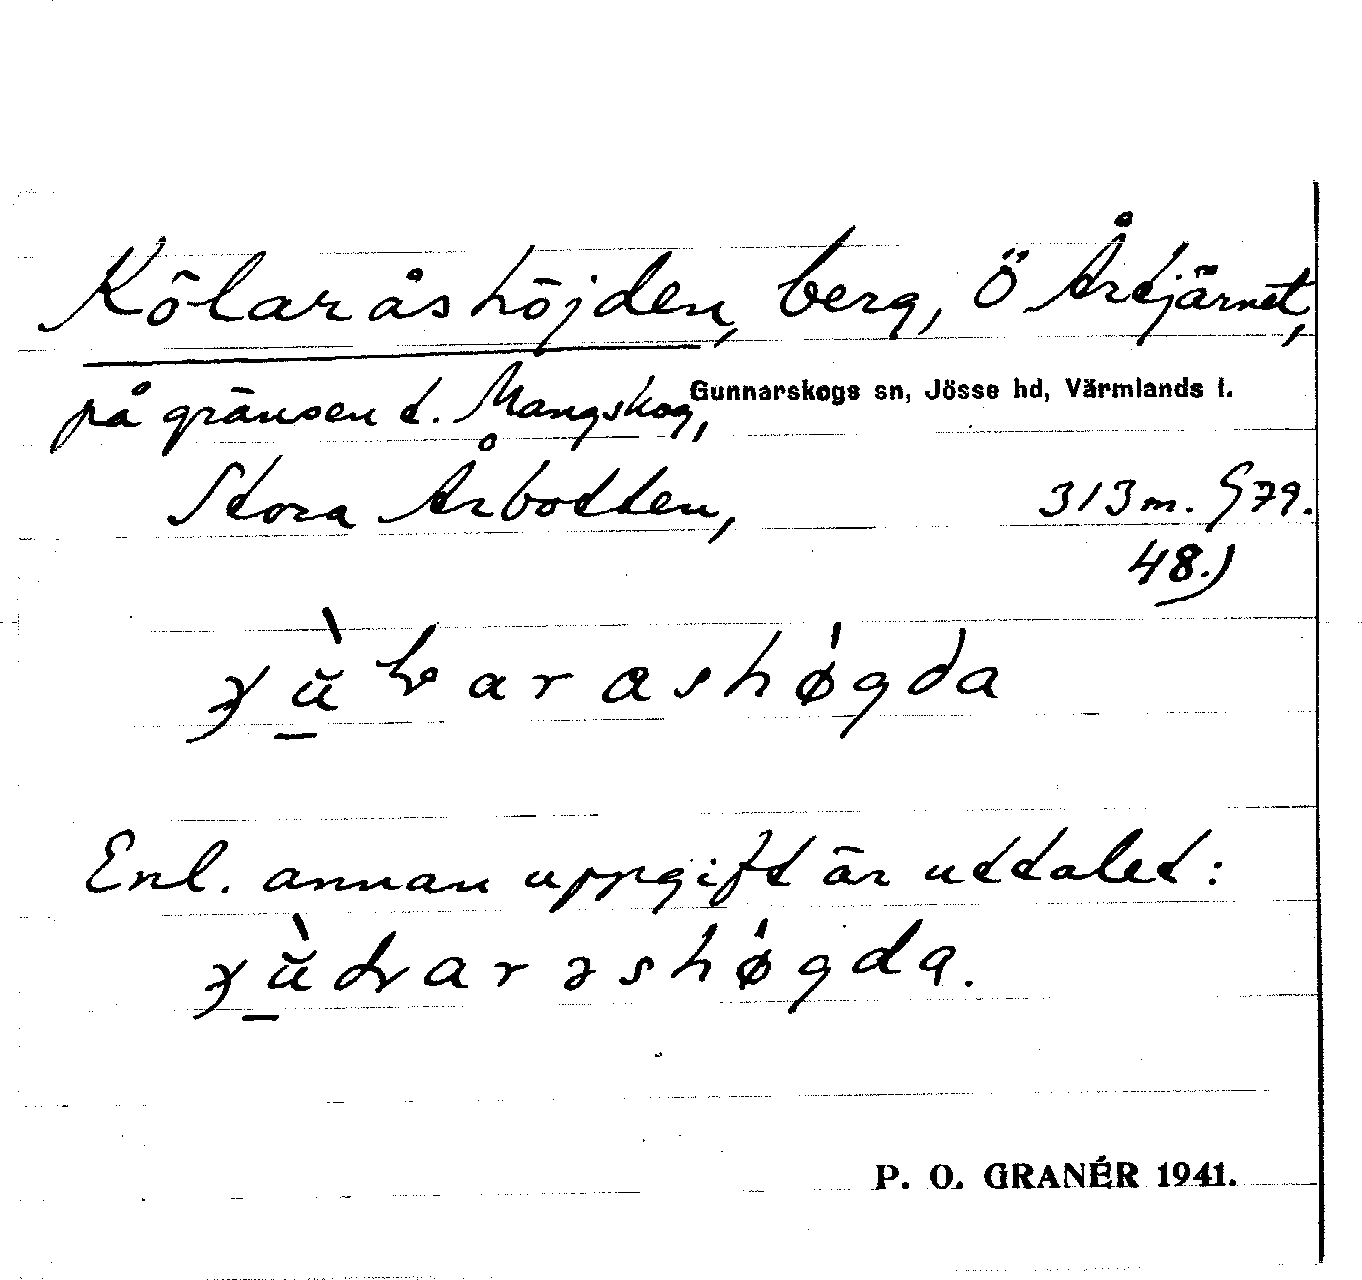 Kölaråshöjden, berg, Ö Årtjärnet,
på gränsen t. Mangskog,
Gunnarskogs sn, Jösse hd, Värmlands l.
Stora Årbotten, 313 m. § 79.
48.)
Enl. annan uppgift är uttalet:
P. O. GRANÉR 1941.